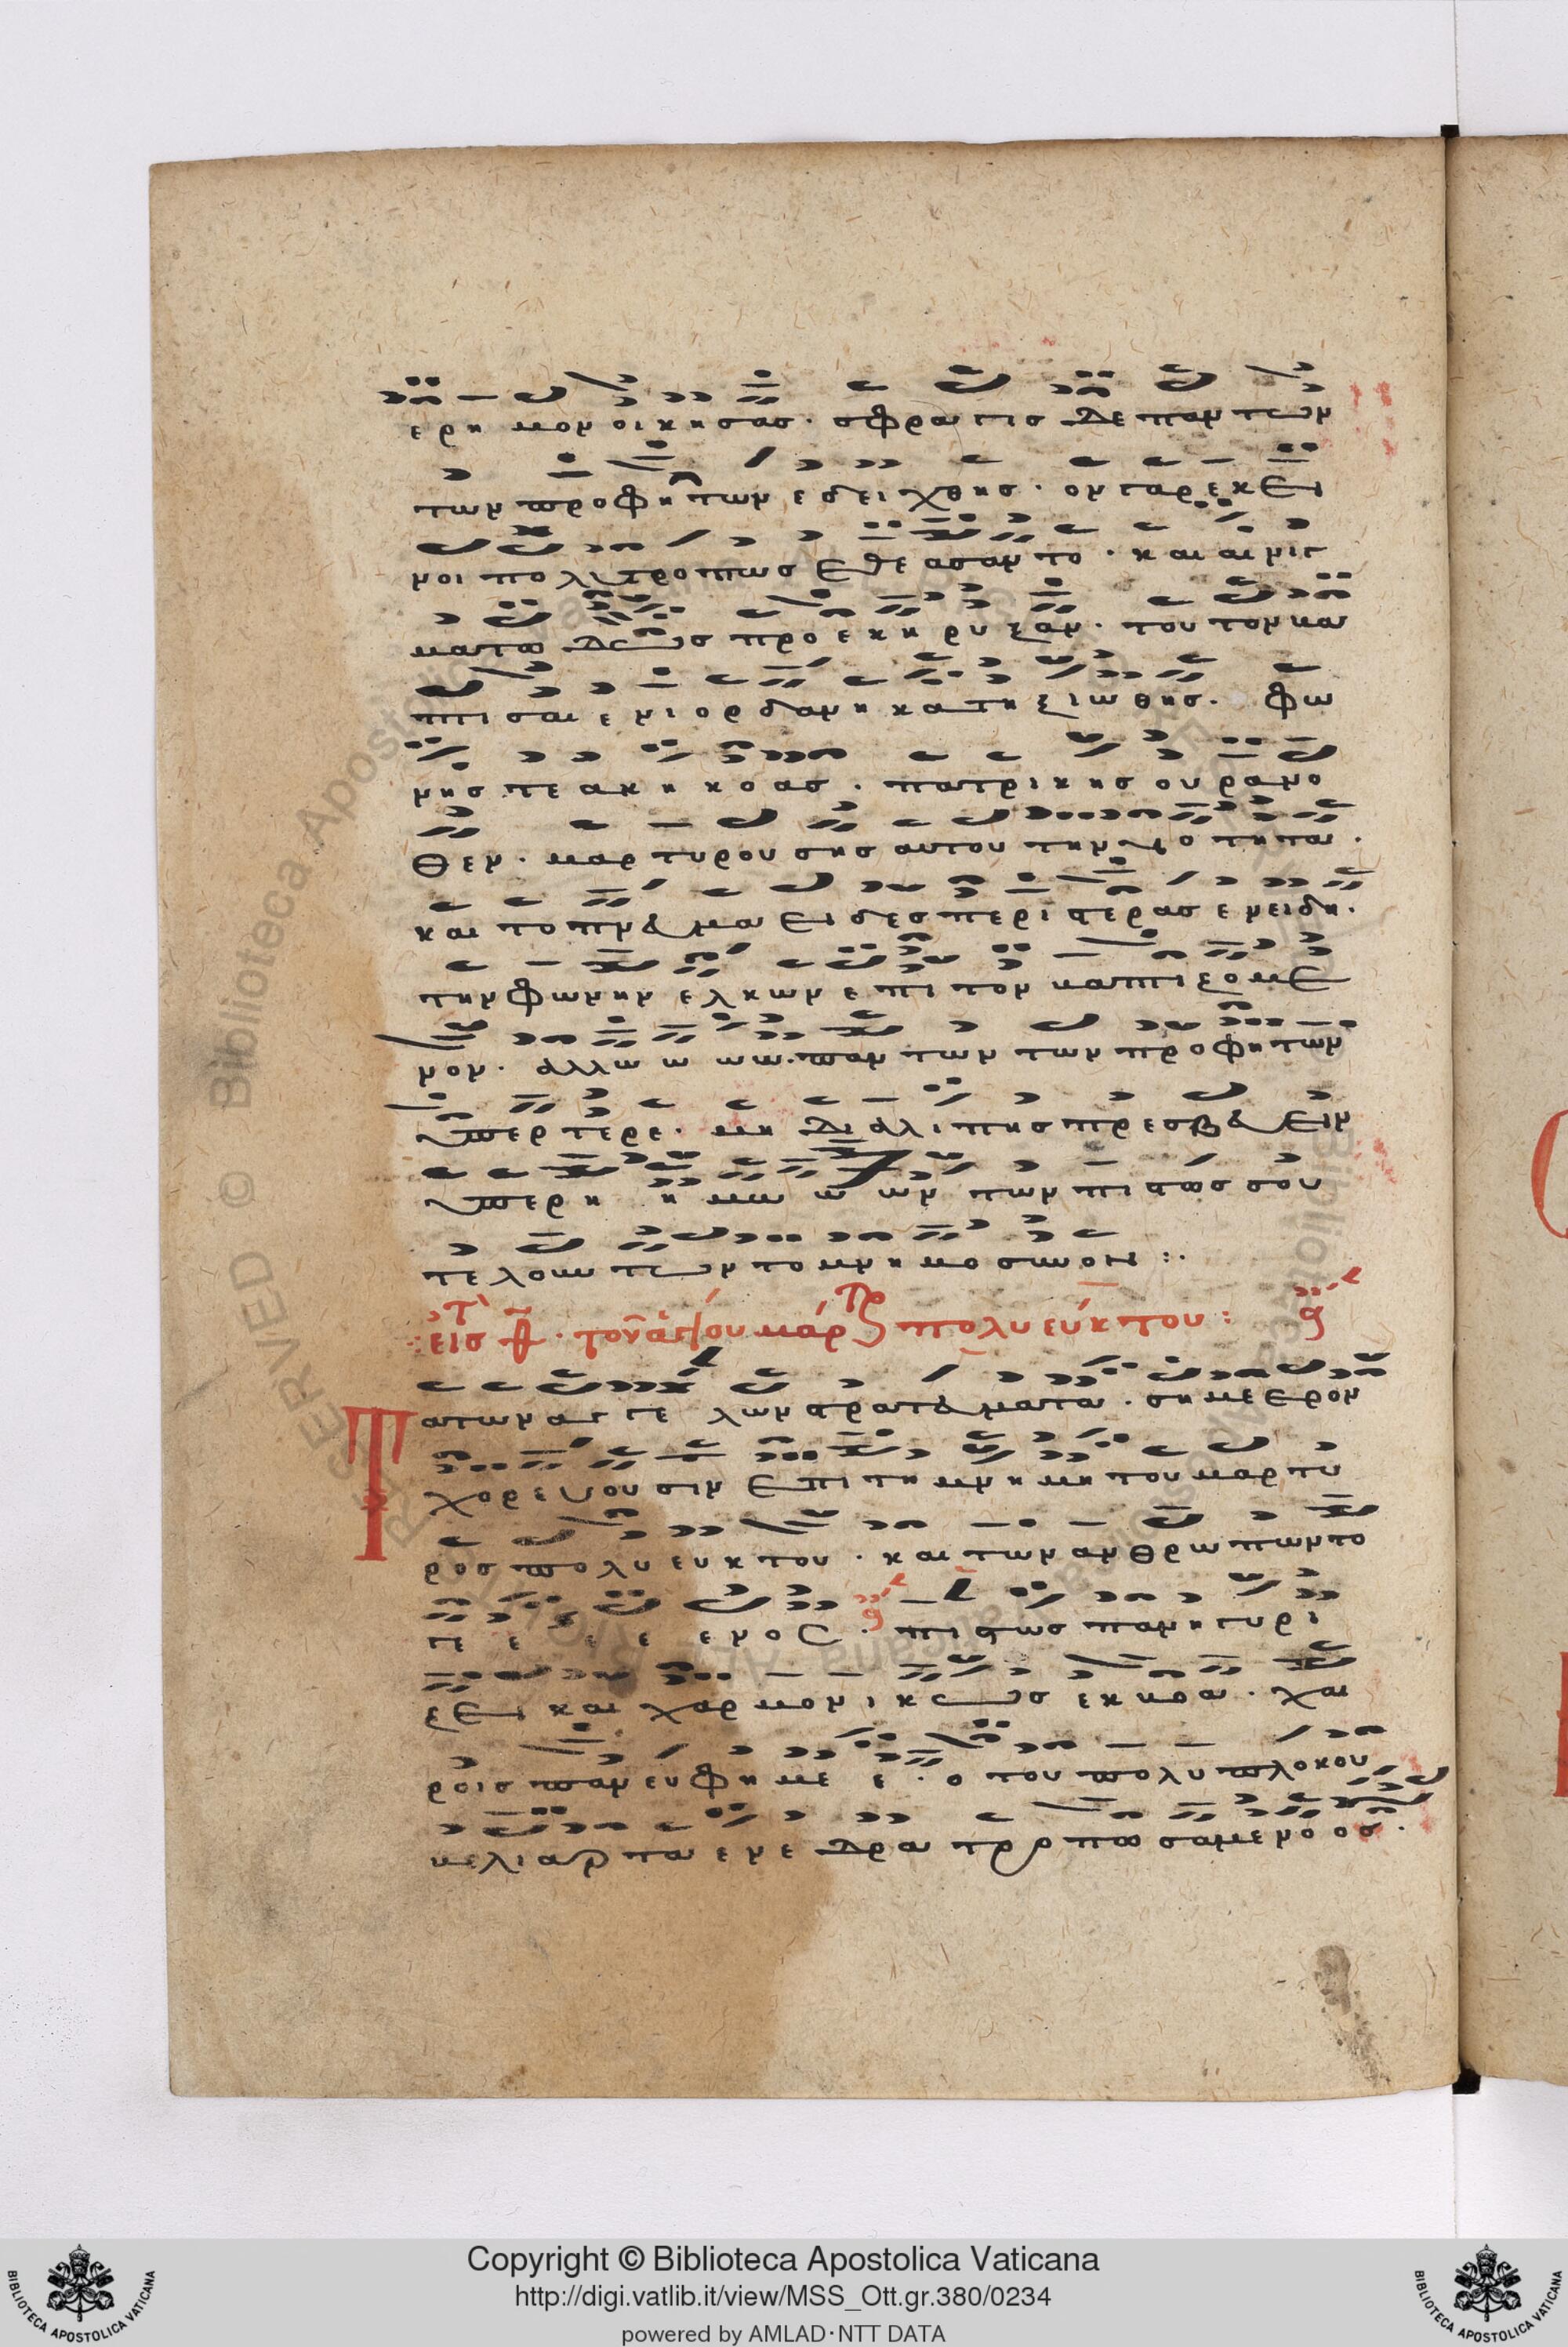 ερημον οικησας · σφραγις δε παντων
των προφητων εδειχθης · ον γαρ εκει
νοι πολυτροπως εθεασαντο · και αινιγ
ματωδως προεκηρυξαν · τουτον βα
πτισαι εν ιορδανη κατηξιωθης · φω
νης τε ακηκοας · πατρικης ουρανο
θεν · μαρτυρουσης αυτου την υιοτητα ·
και το πνευμα ειδες περιστερας εν ειδη ·
την φωνην ελκων επι τον βαπτιζομε
νον · αλλ ω ω ω ω · παντων των προφητων
υπερτερε · μη διαλιπης πρεσβευειν
υπερ η η μω ω ων των πιστως σου
τελουντων το μνημοσυνον :·
εις τον αγιου μαρ πολυευκτου :
Τα των αγγελων στρατευματα · σημερον
χορευουσιν επι τη μνημη του μαρτυ
ρος πολυευκτου · και των ανθρωπων το
γε ε ε ε ε ενος · πιστως πανηγυρι
ζει και χαρμονικως εκβοα · χαι
ροις πανευφημε ε · ο του πολυπλοκου
βελιαρ τα ενεδρα τροπωσαμενο ος ·
Copyright © Biblioteca Apostolica Vaticana
http://digi.vatlib.it/view/MSS_Ott.gr.380/0234
powered by AMLAD·NTT DATA
BIBLIOTECA APOSTOLICA VATICANA
BIBLIOTECA APOSTOLICA VATICANA